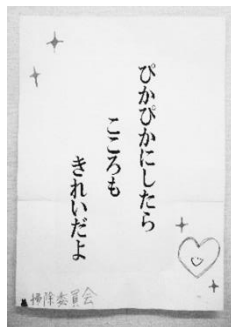 ぴかぴかにしたら
こころも
きれいだよ
掃除委員会